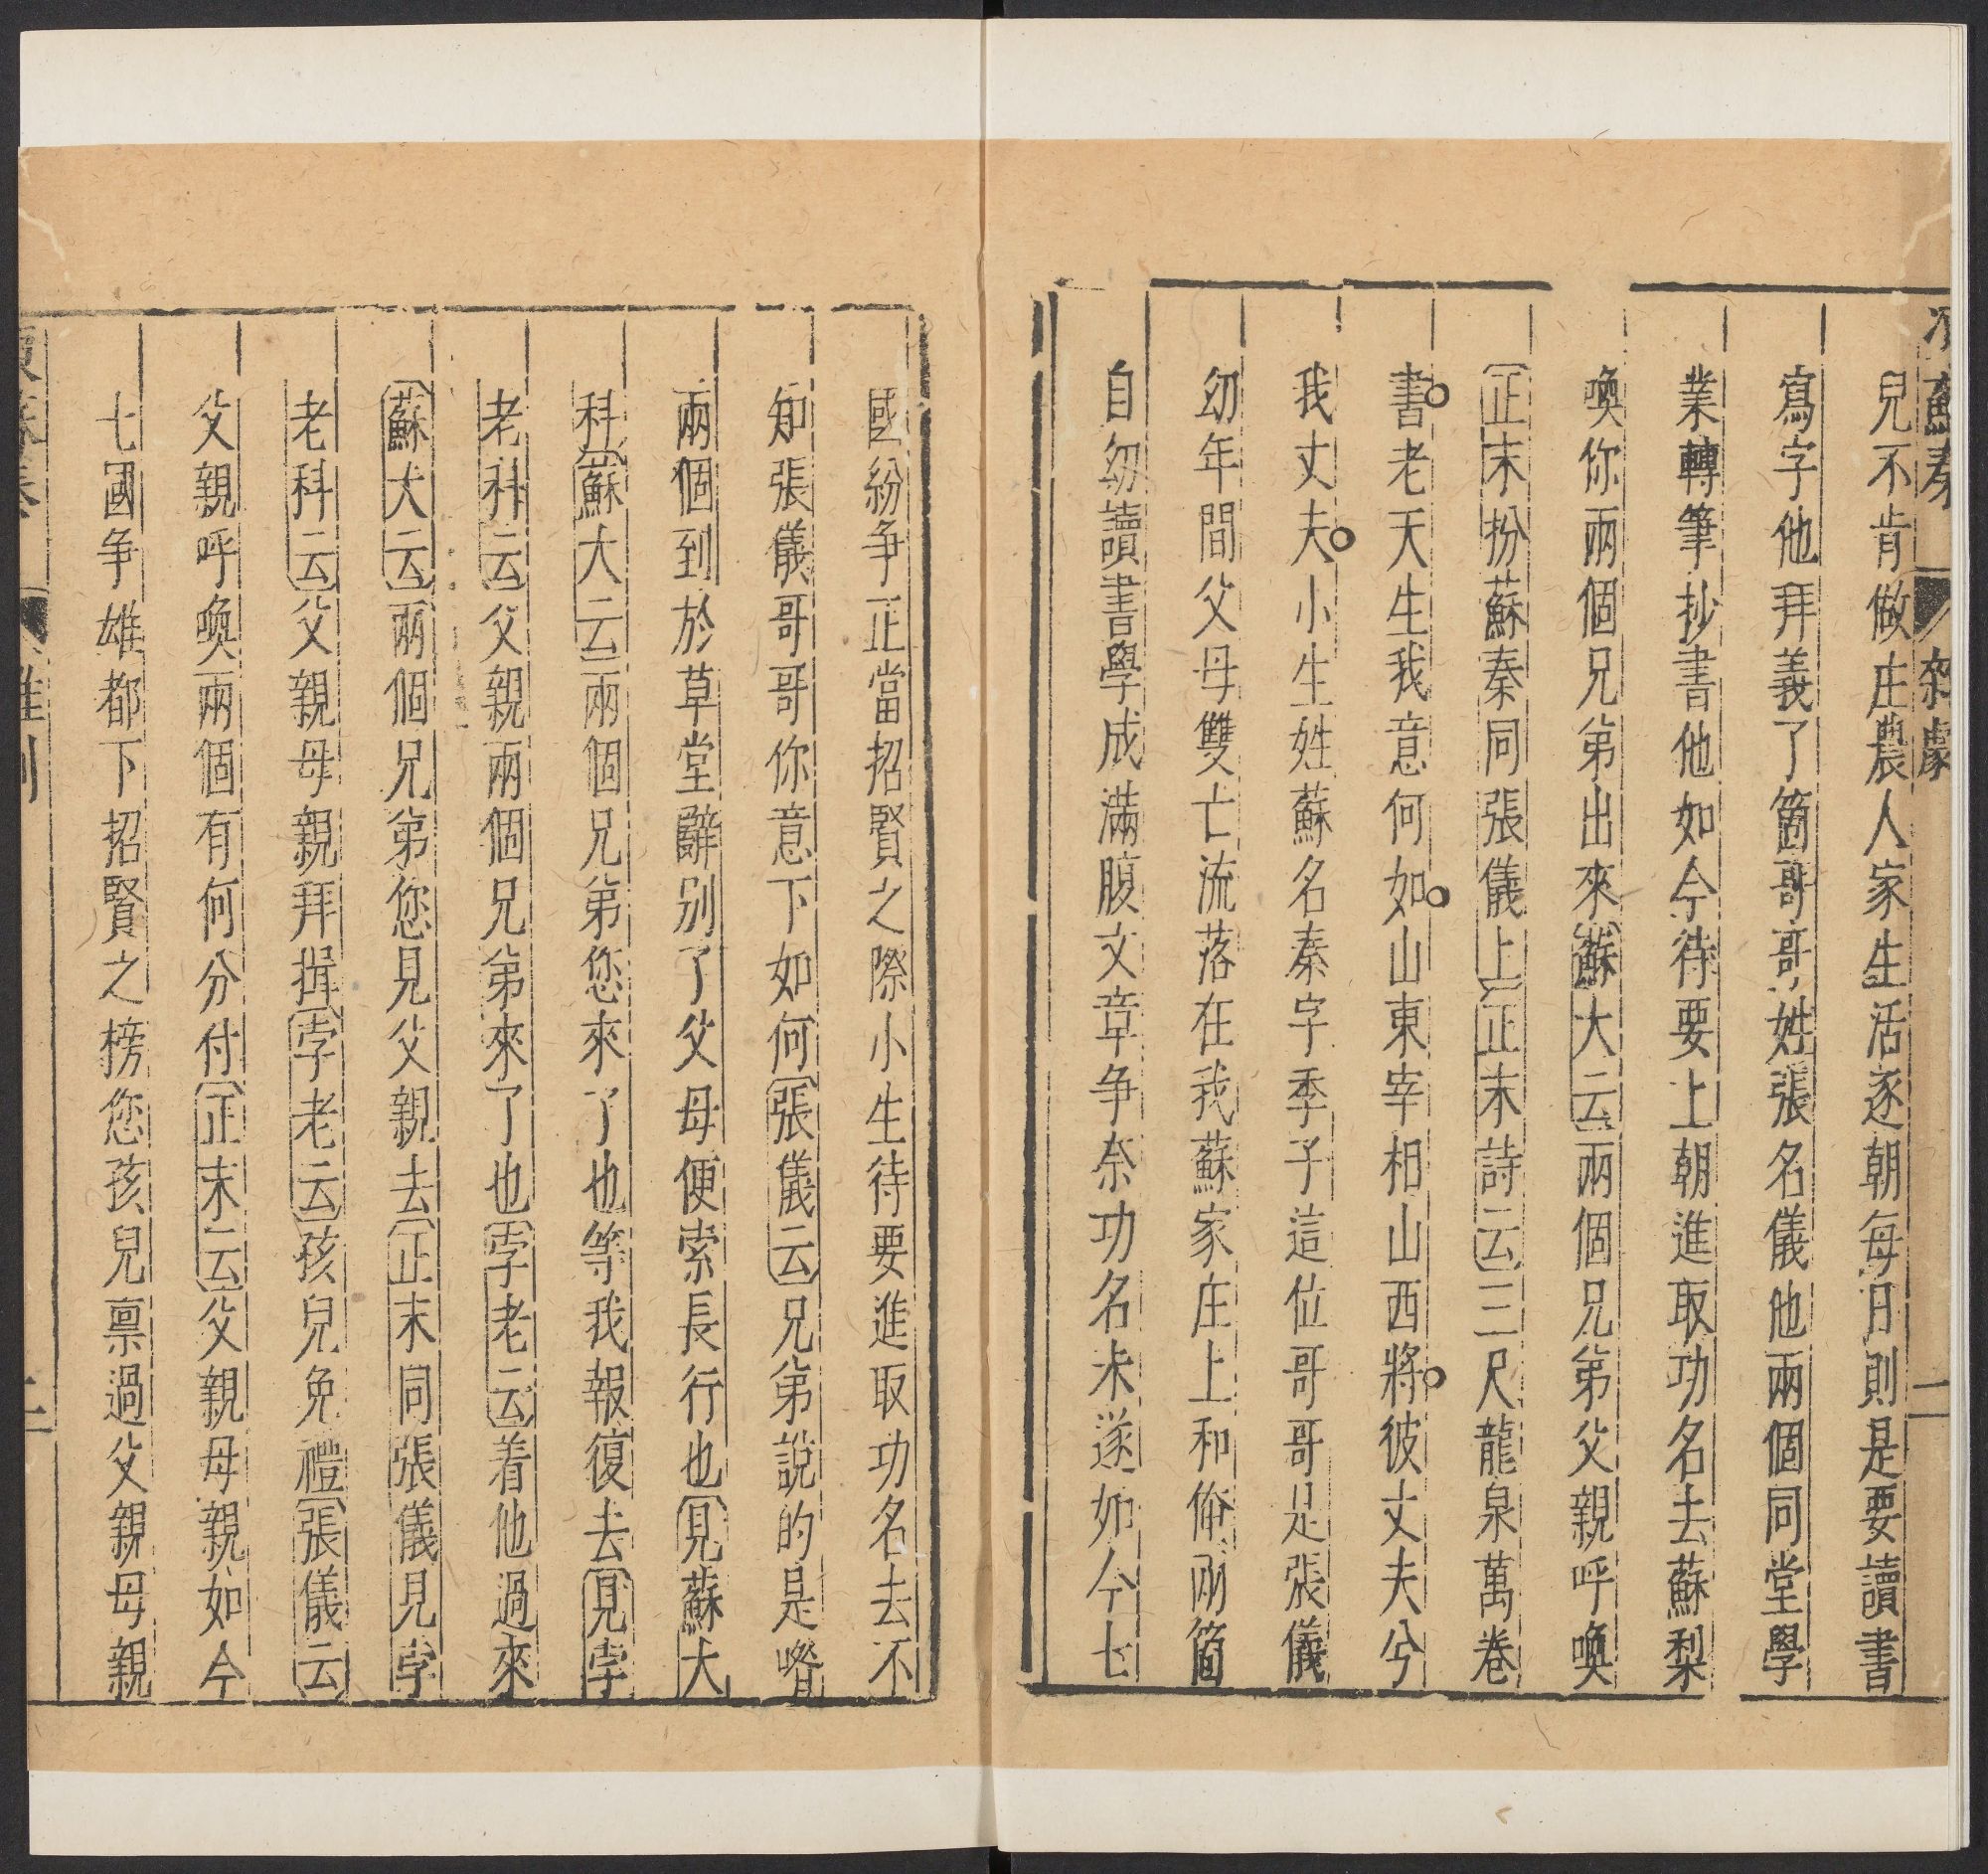 蘇秦 雜劇 一
兒不肯做庄農人家生活逐朝每日則是要讀書
寫字他拜義了箇哥哥姓張名儀他兩個同堂學
業轉筆抄書他如今待要上朝進取功名去蘇梨
喚你兩個兄弟出來蘇大云兩個兄弟父親呼喚
正末扮蘇秦同張儀上正末詩云三尺龍泉萬卷
書老天生我意何如山東宰相山西將彼丈夫兮
我丈夫小生姓蘇名秦字季子這位哥哥是張儀
幼年間父母雙亡流落在我蘇家庄上和俺兩箇
自幼讀書學成滿腹文章争奈功名未遂如今七
國紛争正當招賢之際小生待要進取功名去不
知張儀哥哥你意下如何張儀云兄弟說的是喒
兩個到於草堂辭别了父母便索長行也見蘇大
科蘇大云兩個兄弟您來了也等我報復去見孛
老科云父親兩個兄弟來了也孛老云着他過來
蘇大云兩個兄弟您見父親去正末同張儀見孛
老科云父親母親拜揖孛老云孩兒免禮張儀云
父親呼喚兩個有何分付正末云父親母親如今
七國争雄都下招賢之榜您孩兒禀過父親母親